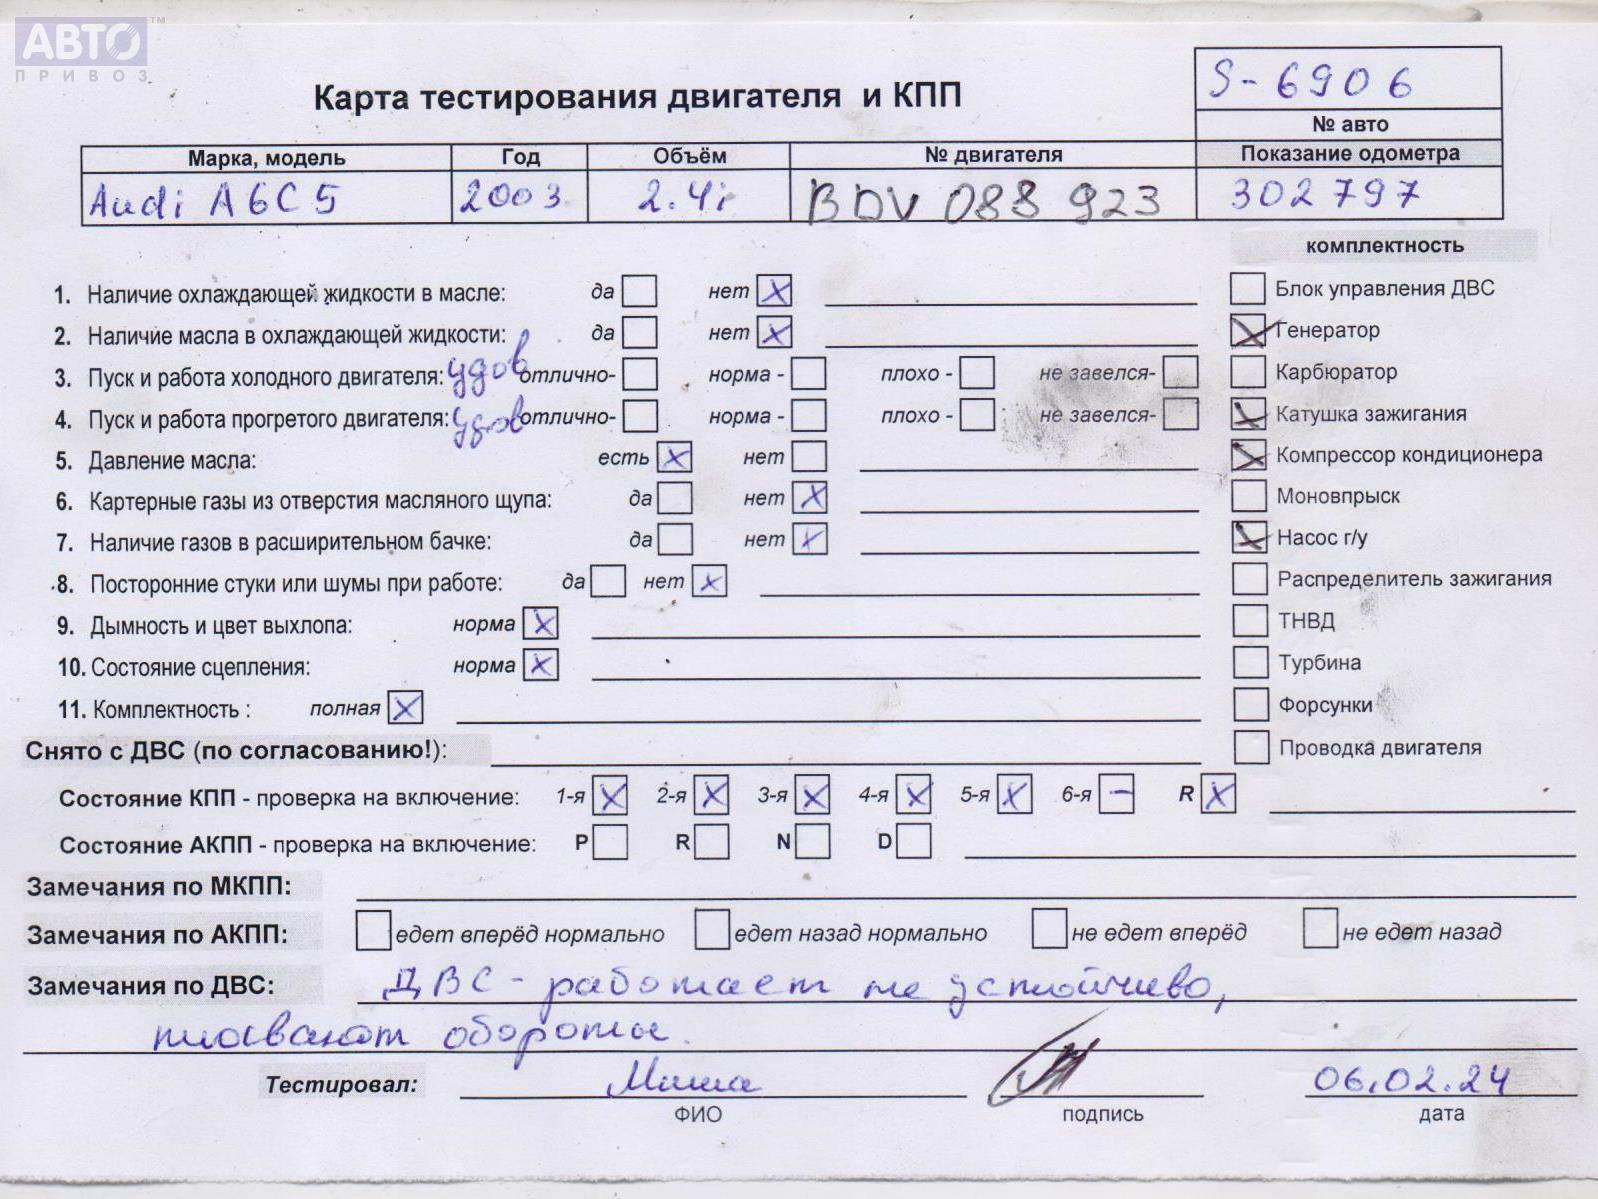 АВТО™
ПРИВОЗ
Карта тестирования двигателя и КПП
S-6906
№ авто
Марка, модель Год Объём № двигателя Показание одометра
Audi A6C5 2003 2.4i BDV 088 923 302797
комплектность
1. Наличие охлаждающей жидкости в масле: да нет X
Блок управления ДВС
2. Наличие масла в охлаждающей жидкости: да нет X
X Генератор
3. Пуск и работа холодного двигателя: удов отлично- норма - плохо - не завелся-
Карбюратор
4. Пуск и работа прогретого двигателя: удов отлично- норма - плохо - не завелся-
X Катушка зажигания
5. Давление масла: есть X нет
X Компрессор кондиционера
6. Картерные газы из отверстия масляного щупа: да нет X
Моновпрыск
7. Наличие газов в расширительном бачке: да нет X
X Насос г/у
8. Посторонние стуки или шумы при работе: да нет X
Распределитель зажигания
9. Дымность и цвет выхлопа: норма X
ТНВД
10. Состояние сцепления: норма X
Турбина
11. Комплектность : полная X
Форсунки
Снято с ДВС (по согласованию!):
Проводка двигателя
Состояние КПП - проверка на включение: 1-я X 2-я X 3-я X 4-я X 5-я X 6-я – R X
Состояние АКПП - проверка на включение: P R N D
Замечания по МКПП:
Замечания по АКПП: едет вперёд нормально едет назад нормально не едет вперёд не едет назад
Замечания по ДВС: ДВС - работает не устойчиво,
плавают обороты.
Тестировал: Миша 06.02.24
ФИО подпись дата